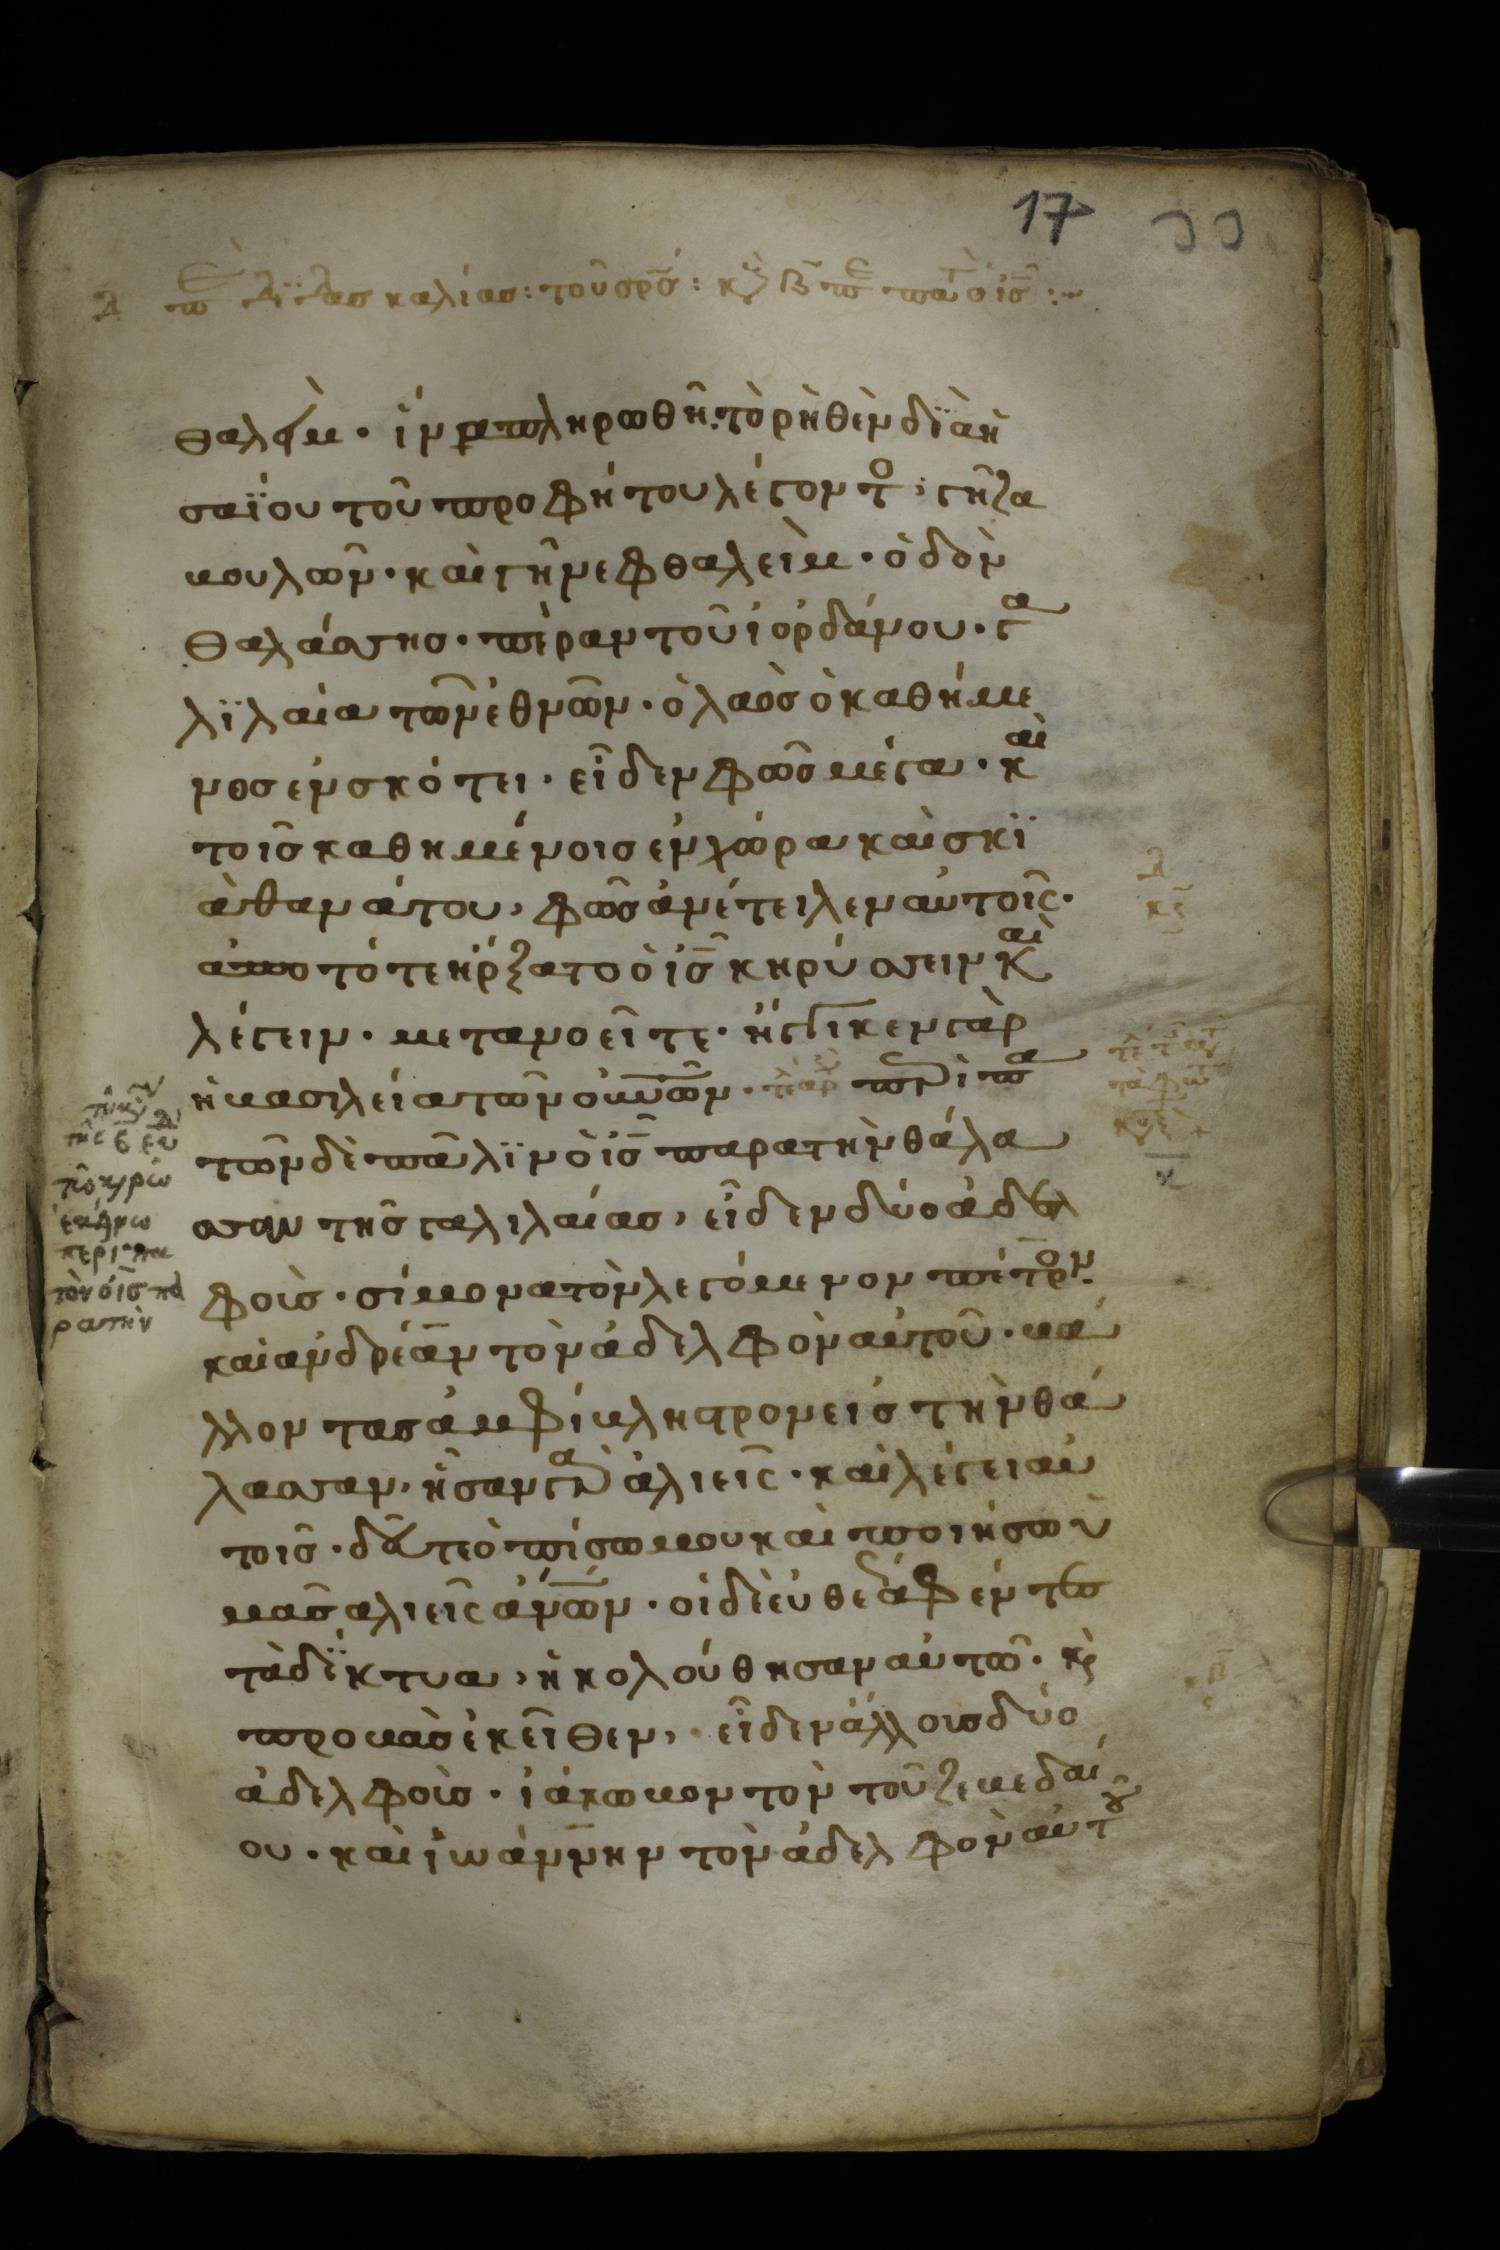 17
θαλείμ · ἵνα πληρωθῆ τὸ ρηθὲν δϊὰ ἡ
σαΐου τοῦ προφήτου λέγοντο · γῆ ζα
βουλῶν · καὶ γῆ νεφθαλείμ · ὁδὸν
θαλάσσης · πέραν τοῦ ἰορδάνου · γα
λϊλαία τῶν ἐθνῶν · ὁ λαὸς ὁ καθήμε
νος ἐν σκότει · εἶδεν φῶς μέγα · καὶ
τοῖς καθημένοις ἐν χώρα καὶ σκϊ
ᾶ θανάτου, φῶς ἀνέτειλεν αὐτοῖς ·
ἀπο τότε ἤρξατο ὁ ις κηρύσσειν καὶ
λέγειν · μετανοεῖτε · ἤγγικεν γὰρ
ἡ βασιλεία τῶν οὐνῶν · περιπα
τῶν δὲ πάλϊν ὁ ις παρα τὴν θάλα
σσαν τῆς γαλιλαίας, εἶδεν δύο ἀδελ
φοὺς · σίμονα τὸν λεγόμενον πέτρον
καὶ ἀνδρέαν τὸν ἀδελφὸν αὐτοῦ · βά
λλοντας ἀμφίβληστρον εἰς τὴν θά
λασσαν, ἦσαν γὰρ ἁλιεῖς · καὶ λέγει αὐ
τοῖς · δεῦτε ὀπίσω μου καὶ ποιήσω ὑ
μᾶς ἁλιεῖς ἀνῶν · οἱ δὲ εὐθέως ἀφέντες
τὰ δΐκτυα, ἠκολούθησαν αὐτῶ · κ
προβὰς ἐκεῖθεν, εἶδεν ἄλλους δύο
ἀδελφοὺς · ἰάκωβον τὸν τοῦ ζεβεδαί
ου · καὶ ἰωάννην τὸν ἀδελφὸν αὐτοῦ